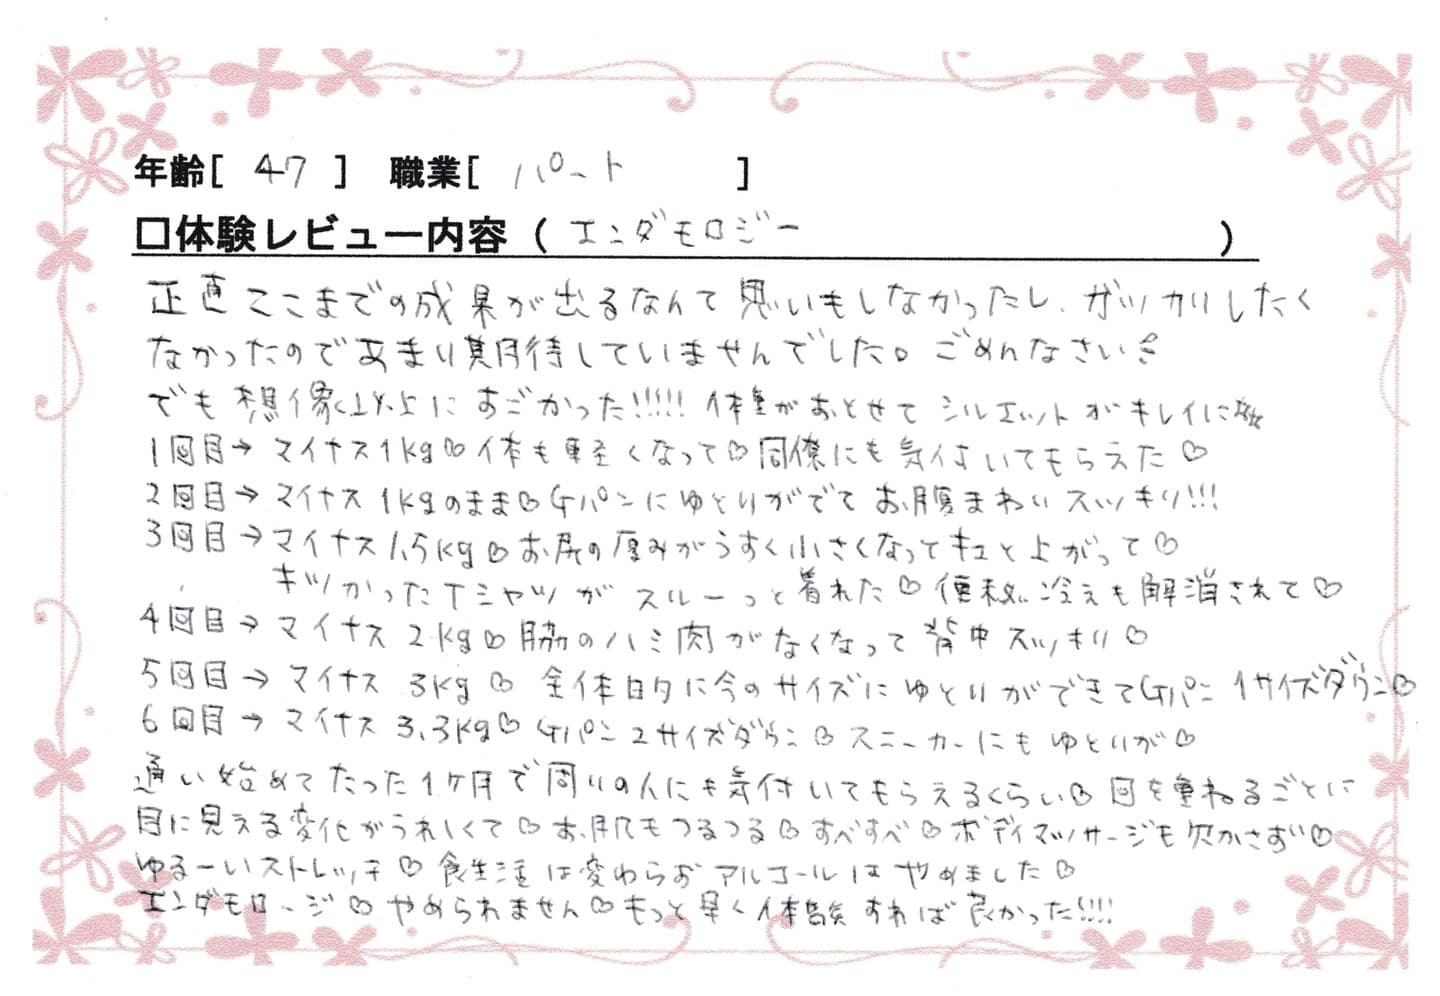 年齢[ 47 ] 職業[ パート ]
□体験レビュー内容 ( エンダモロジー )
正直ここまでの成果が出るなんて思いもしなかったし、ガッカリしたく
なかったのであまり期待していませんでした。ごめんなさい
でも想像以上にすごかった!!!!! 体重がおとせて シルエットがキレイに
1回目→ マイナス1kg♡♡体も軽くなって♡同僚にも気付いてもらえた♡
2回目→ マイナス1kgのまま♡Gパンにゆとりがでて お腹まわりスッキリ!!!
3回目→ マイナス1.5kg♡お尻の厚みがうすく小さくなってキュと上がって♡
キツかったTシャツが スルーっと着れた♡ 便秘、冷えも解消されて♡
4回目→ マイナス 2kg♡脇のハミ肉がなくなって 背中スッキリ♡
5回目→ マイナス 3kg♡ 全体的に今のサイズにゆとりができてGパン 1サイズダウン♡
6回目→ マイナス 3.3kg♡ Gパン2サイズダウン♡スニーカーにもゆとりが♡
通い始めてたった1ヶ月で周りの人にも気付いてもらえるくらい♡ 回を重ねるごとに
目に見える変化がうれしくて♡お肌もつるつる♡すべすべ♡ボディマッサージも欠かさず♡
ゆるーいストレッチ♡ 食生活は変わらずアルコールはやめました♡
エンダモロージ♡やめられません♡もっと早く体験すれば良かった!!!!